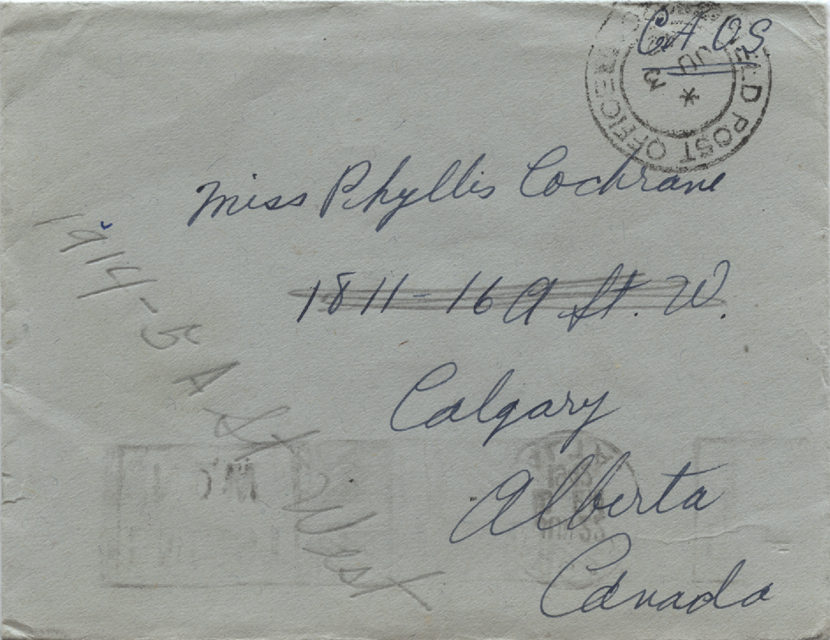 CAOS
FIELD POST OFFICE
3
JU
*
Miss Phyllis Cochrane
1811-16A St. W.
Calgary
Alberta
Canada
1914-5A St West